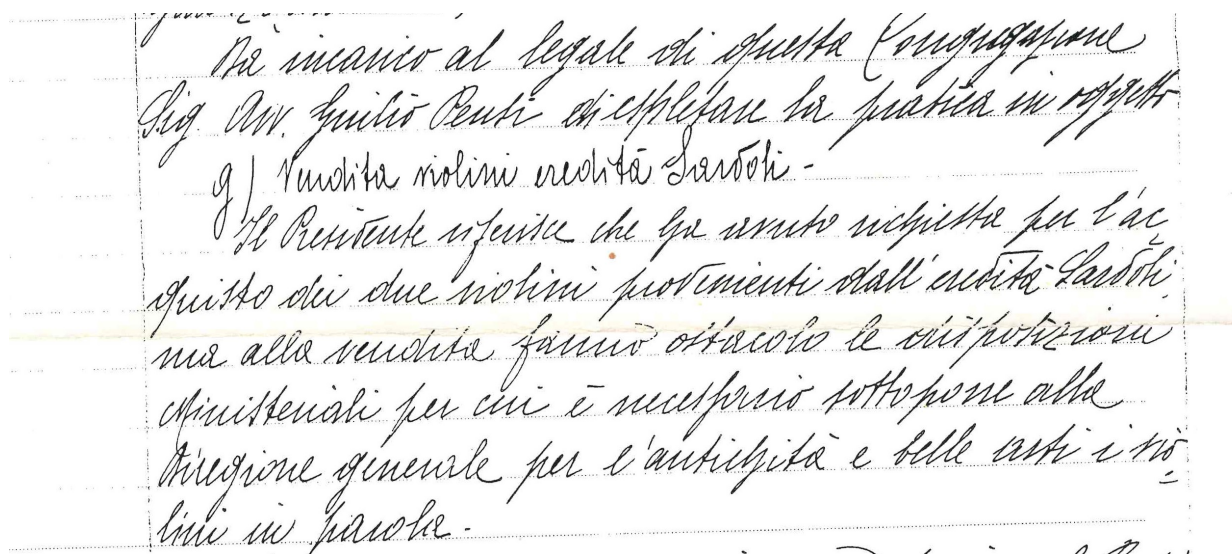 Dà incarico al legale di questa Congregazione
Sig. Avv. Giulio Penti di espletare la pratica in oggetto
g) Vendita violini eredità Sardoli -
Il Presidente riferisce che ha avuto richiesta per l'ac=
quisto dei due violini provenienti dall'eredità Sardoli
ma alla vendita fanno ostacolo le disposizioni
Ministeriali per cui è necessario sottoporre alla
Direzione generale per l'antichità e belle arti i vio=
lini in parola -